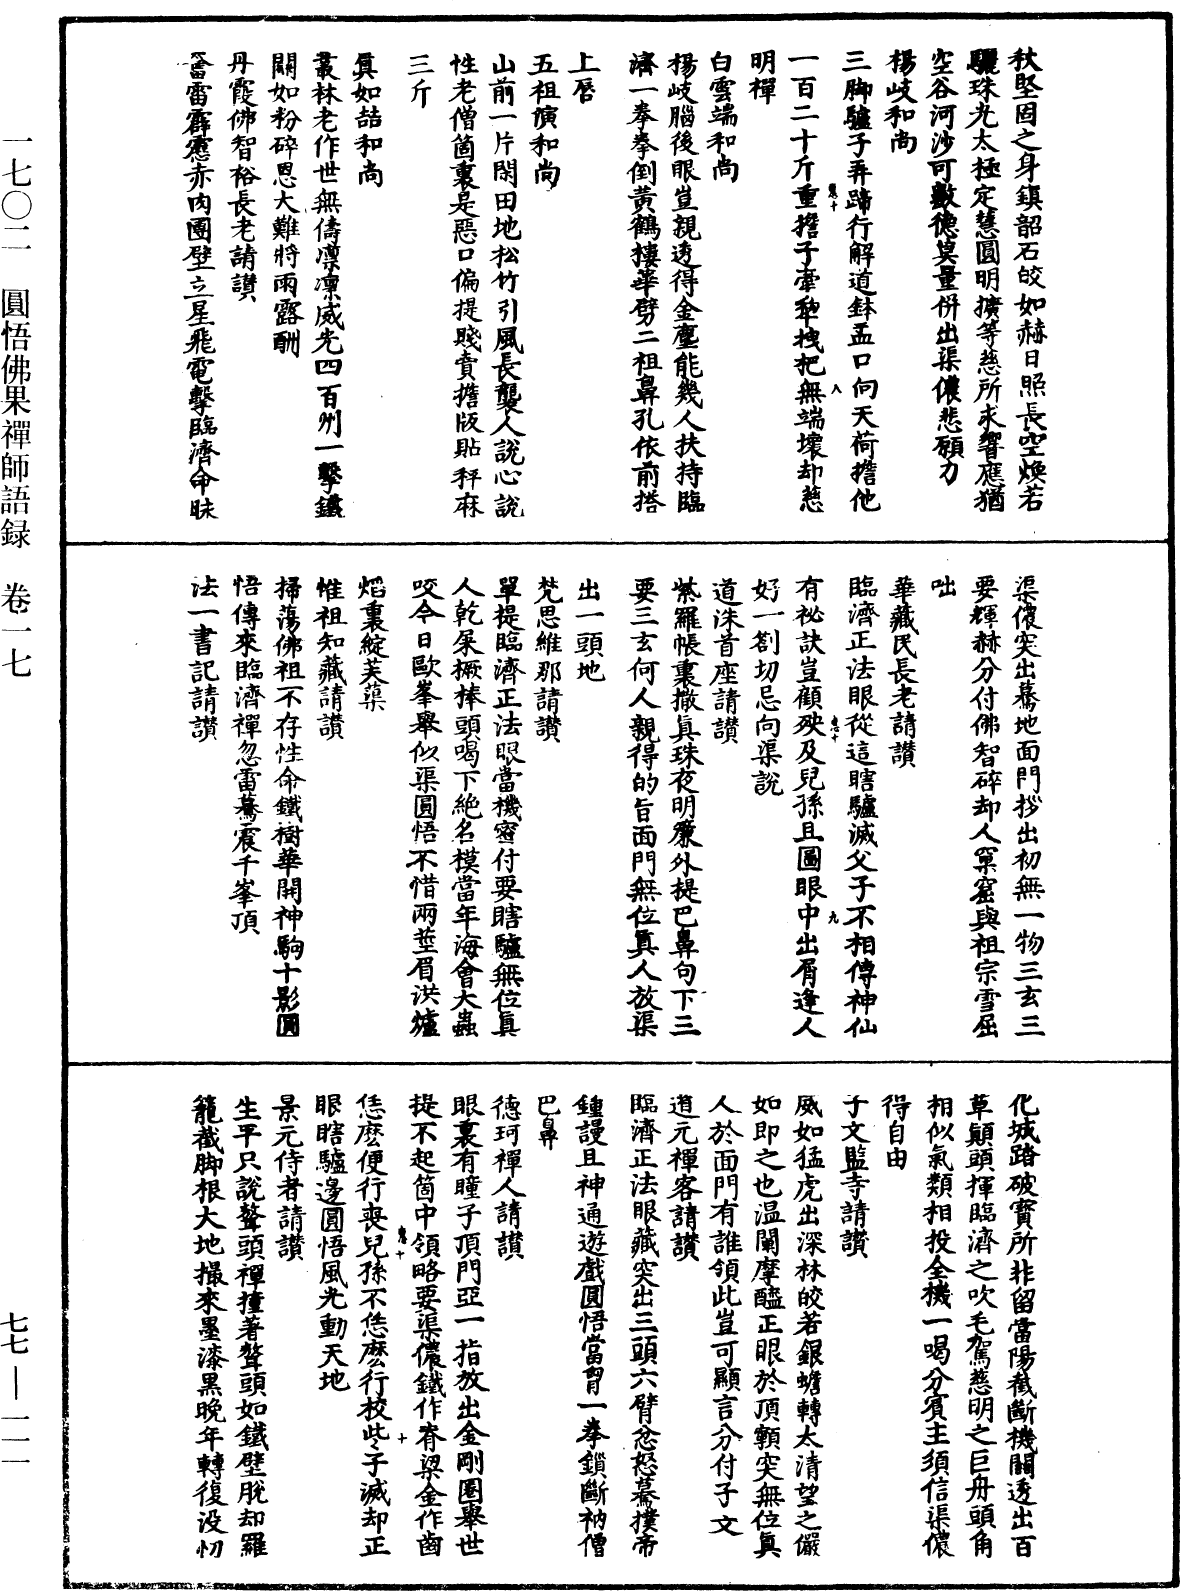 秋堅固之身鎮韶石皎如赫日照長空煥若
驪珠光太極定慧圓明擴等慈所求響應猶
空谷河沙可數德莫量併出渠儂悲願力
楊岐和尚
三脚驢子弄蹄行解道鉢盂口向天荷擔他
一百二十斤重擔子牽犂拽杷無端壞却慈
明禪
白雲端和尚
楊岐腦後眼豈親透得金塵能幾人扶持臨
濟一拳拳倒黃鶴樓華劈二祖鼻孔依前搭
上唇
五祖演和尚
山前一片閑田地松竹引風長襲人說心說
性老僧箇裏是惡口偏提賤賣擔版貼秤麻
三斤
真如喆和尚
叢林老作世無儔凛凛威光四百州一擊鐵
關如粉碎恩大難將雨露酬
丹霞佛智裕長老請讚
奮雷霹靂赤肉團壁立星飛電擊臨濟命昧
渠儂突出驀地面門拶出初無一物三玄三
要輝赫分付佛智碎却人窠窟與祖宗雪屈
咄
華藏民長老請讚
臨濟正法眼從這瞎驢滅父子不相傳神仙
有祕訣豈顧殃及兒孫且圖眼中出屑逢人
好一劄切忌向渠說
道洙首座請讚
紫羅帳裏撒真珠夜明簾外提巴鼻句下三
要三玄何人親得的旨面門無位真人放渠
出一頭地
梵思維那請讚
單提臨濟正法眼當機密付要瞎驢無位真
人乾屎橛棒頭喝下絶名模當年海會大蟲
咬今日歐峯舉似渠圓悟不惜兩莖眉洪爐
熖裏綻芙蕖
惟祖知藏請讚
掃蕩佛祖不存性命鐵樹華開神駒十影圓
悟傳來臨濟禪忽雷驀震千峯頂
法一書記請讚
化城踏破寳所非留當陽截斷機關透出百
草顛頭揮臨濟之吹毛駕慈明之巨舟頭角
相似氣類相投全機一喝分賓主須信渠儂
得自由
子文監寺請讚
威如猛虎出深林皎若銀蟾轉太清望之儼
如即之也温闡摩醯正眼於頂顙突無位真
人於面門有誰領此豈可顯言分付子文
道元禪客請讚
臨濟正法眼藏突出三頭六臂忿怒驀撲帝
鍾謾且神通遊戲圓悟當胷一拳鎖斷衲僧
巴鼻
德珂禪人請讚
眼裏有瞳子頂門亞一指放出金剛圈舉世
提不起箇中領略要渠儂鐵作脊梁金作齒
恁麽便行喪兒孫不恁麽行校些子滅却正
眼瞎驢邊圓悟風光動天地
景元侍者請讚
生平只說聱頭禪撞著聱頭如鐵壁脫却羅
籠截脚根大地撮來墨漆黑晚年轉復没忉
一七〇二 圓悟佛果禪師語録 卷一七
七七—一一一